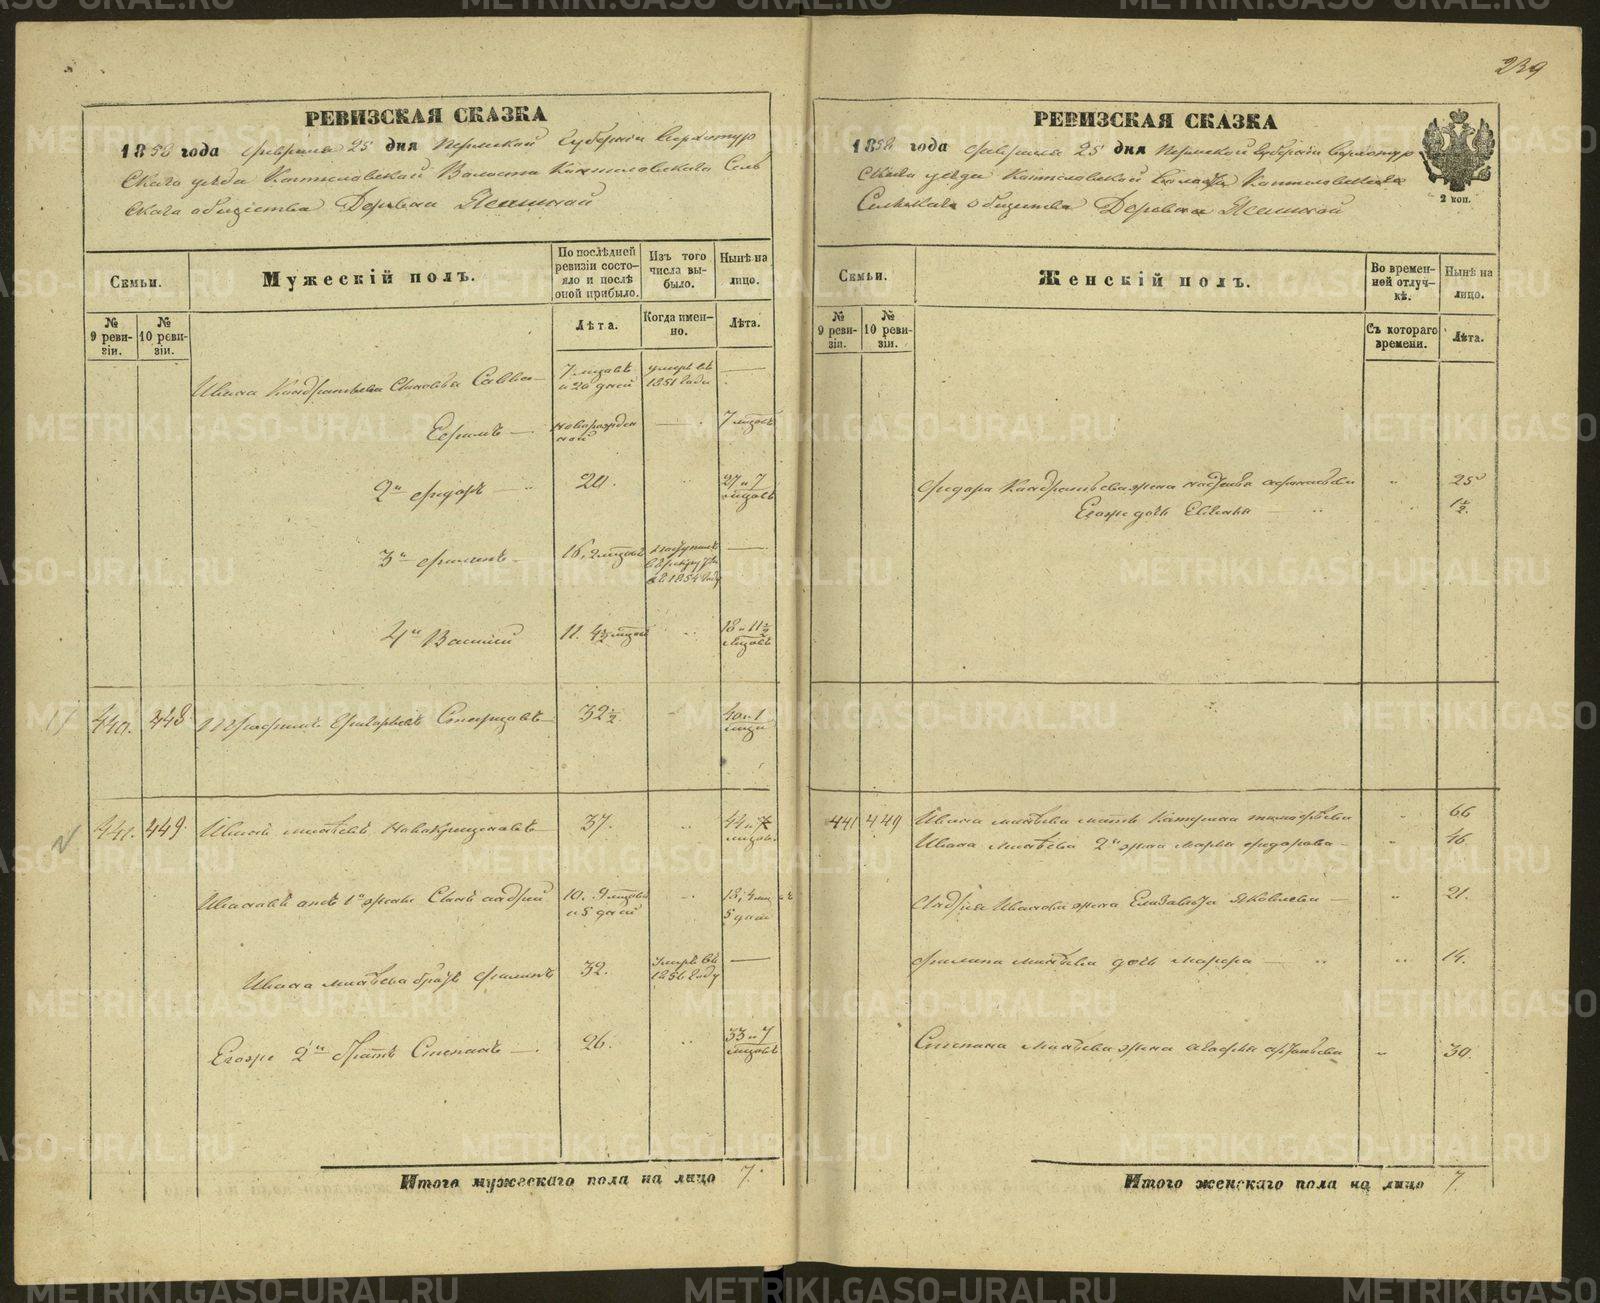 239
РЕВИЗСКАЯ СКАЗКА
1858 года февраля 25 дня Пермской Губернии Верхотур
скаго уезда Коптеловской Волости Коптеловскаго Сель
скаго общества Деревни Ясашной
Семьи.
Мужескій полъ.
По послѣдней ревизіи состояло и послѣ оной прибыло.
Изъ того числа выбыло.
Нынѣ на лицо.
№ 9 ревизіи.
№ 10 ревизіи.
Лѣта.
Когда именно.
Лѣта.
Ивана Кондратьева Сыновья Савва 7 месяцъ и 20 дней умеръ въ 1851 году
Ефимъ новорожденной 7 месяцъ
2й Федоръ 20. 27 и 7 месяцъ
3й Филипъ 16, 2 месяцъ въ 1854 году
4й Василий 11. 4½ 18 и 11½ месяцъ
440. 448. Григорьевъ 32½ 40 и 1
441. 449. Иванъ Матвеевъ Новокрещеновъ 37. 44 и 7 месяцъ
Ивановъ отъ 1й жены Сынъ Андрей 10. 9 месяцъ и 5 дней 18, 4 5 дней
Ивана Матвеева братъ Филипъ 32. умеръ въ 1856 году
Егоже 2й братъ Степанъ 26. 33 и 7 месяцъ
Итого мужескаго пола на лицо 7.
РЕВИЗСКАЯ СКАЗКА
1858 года февраля 25 дня Пермской Губернии Верхотур
скаго уезда Коптеловской Волости Коптеловскаго
Сельскаго общества Деревни Ясашной
2 коп.
Семьи.
Женскій полъ.
Во временной отлучкѣ.
Нынѣ на лицо.
№ 9 ревизіи.
№ 10 ревизіи.
Съ котораго времени.
Лѣта.
Федора Кондратьева жена 25
Егоже дочь 1½.
441 449 Ивана Матвеева мать Катерина Тимофеева 66
Ивана Матвеева 2я жена Марья Федорова 46
Андрея Иванова жена Елизавета Яковлева 21.
Филипа Матвеева дочь 14.
Степана Матвеева жена 30.
Итого женскаго пола на лицо 7.
METRIKI.GASO-URAL.RU